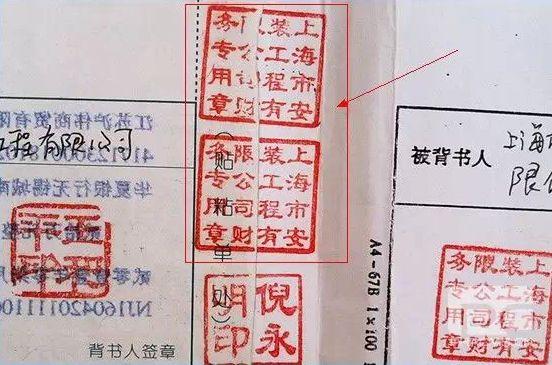 工程有限公司
江苏沪伟商贸有限
华夏银行无锡城南
背书人签章
上海市安
装工程有
限公司财
务专用章
上海市安
装工程有
限公司财
务专用章
(贴粘单处)
倪永
明印
A4-67B 1×100
被背书人
上海
限
上海市安
装工程有
限公司财
务专用章